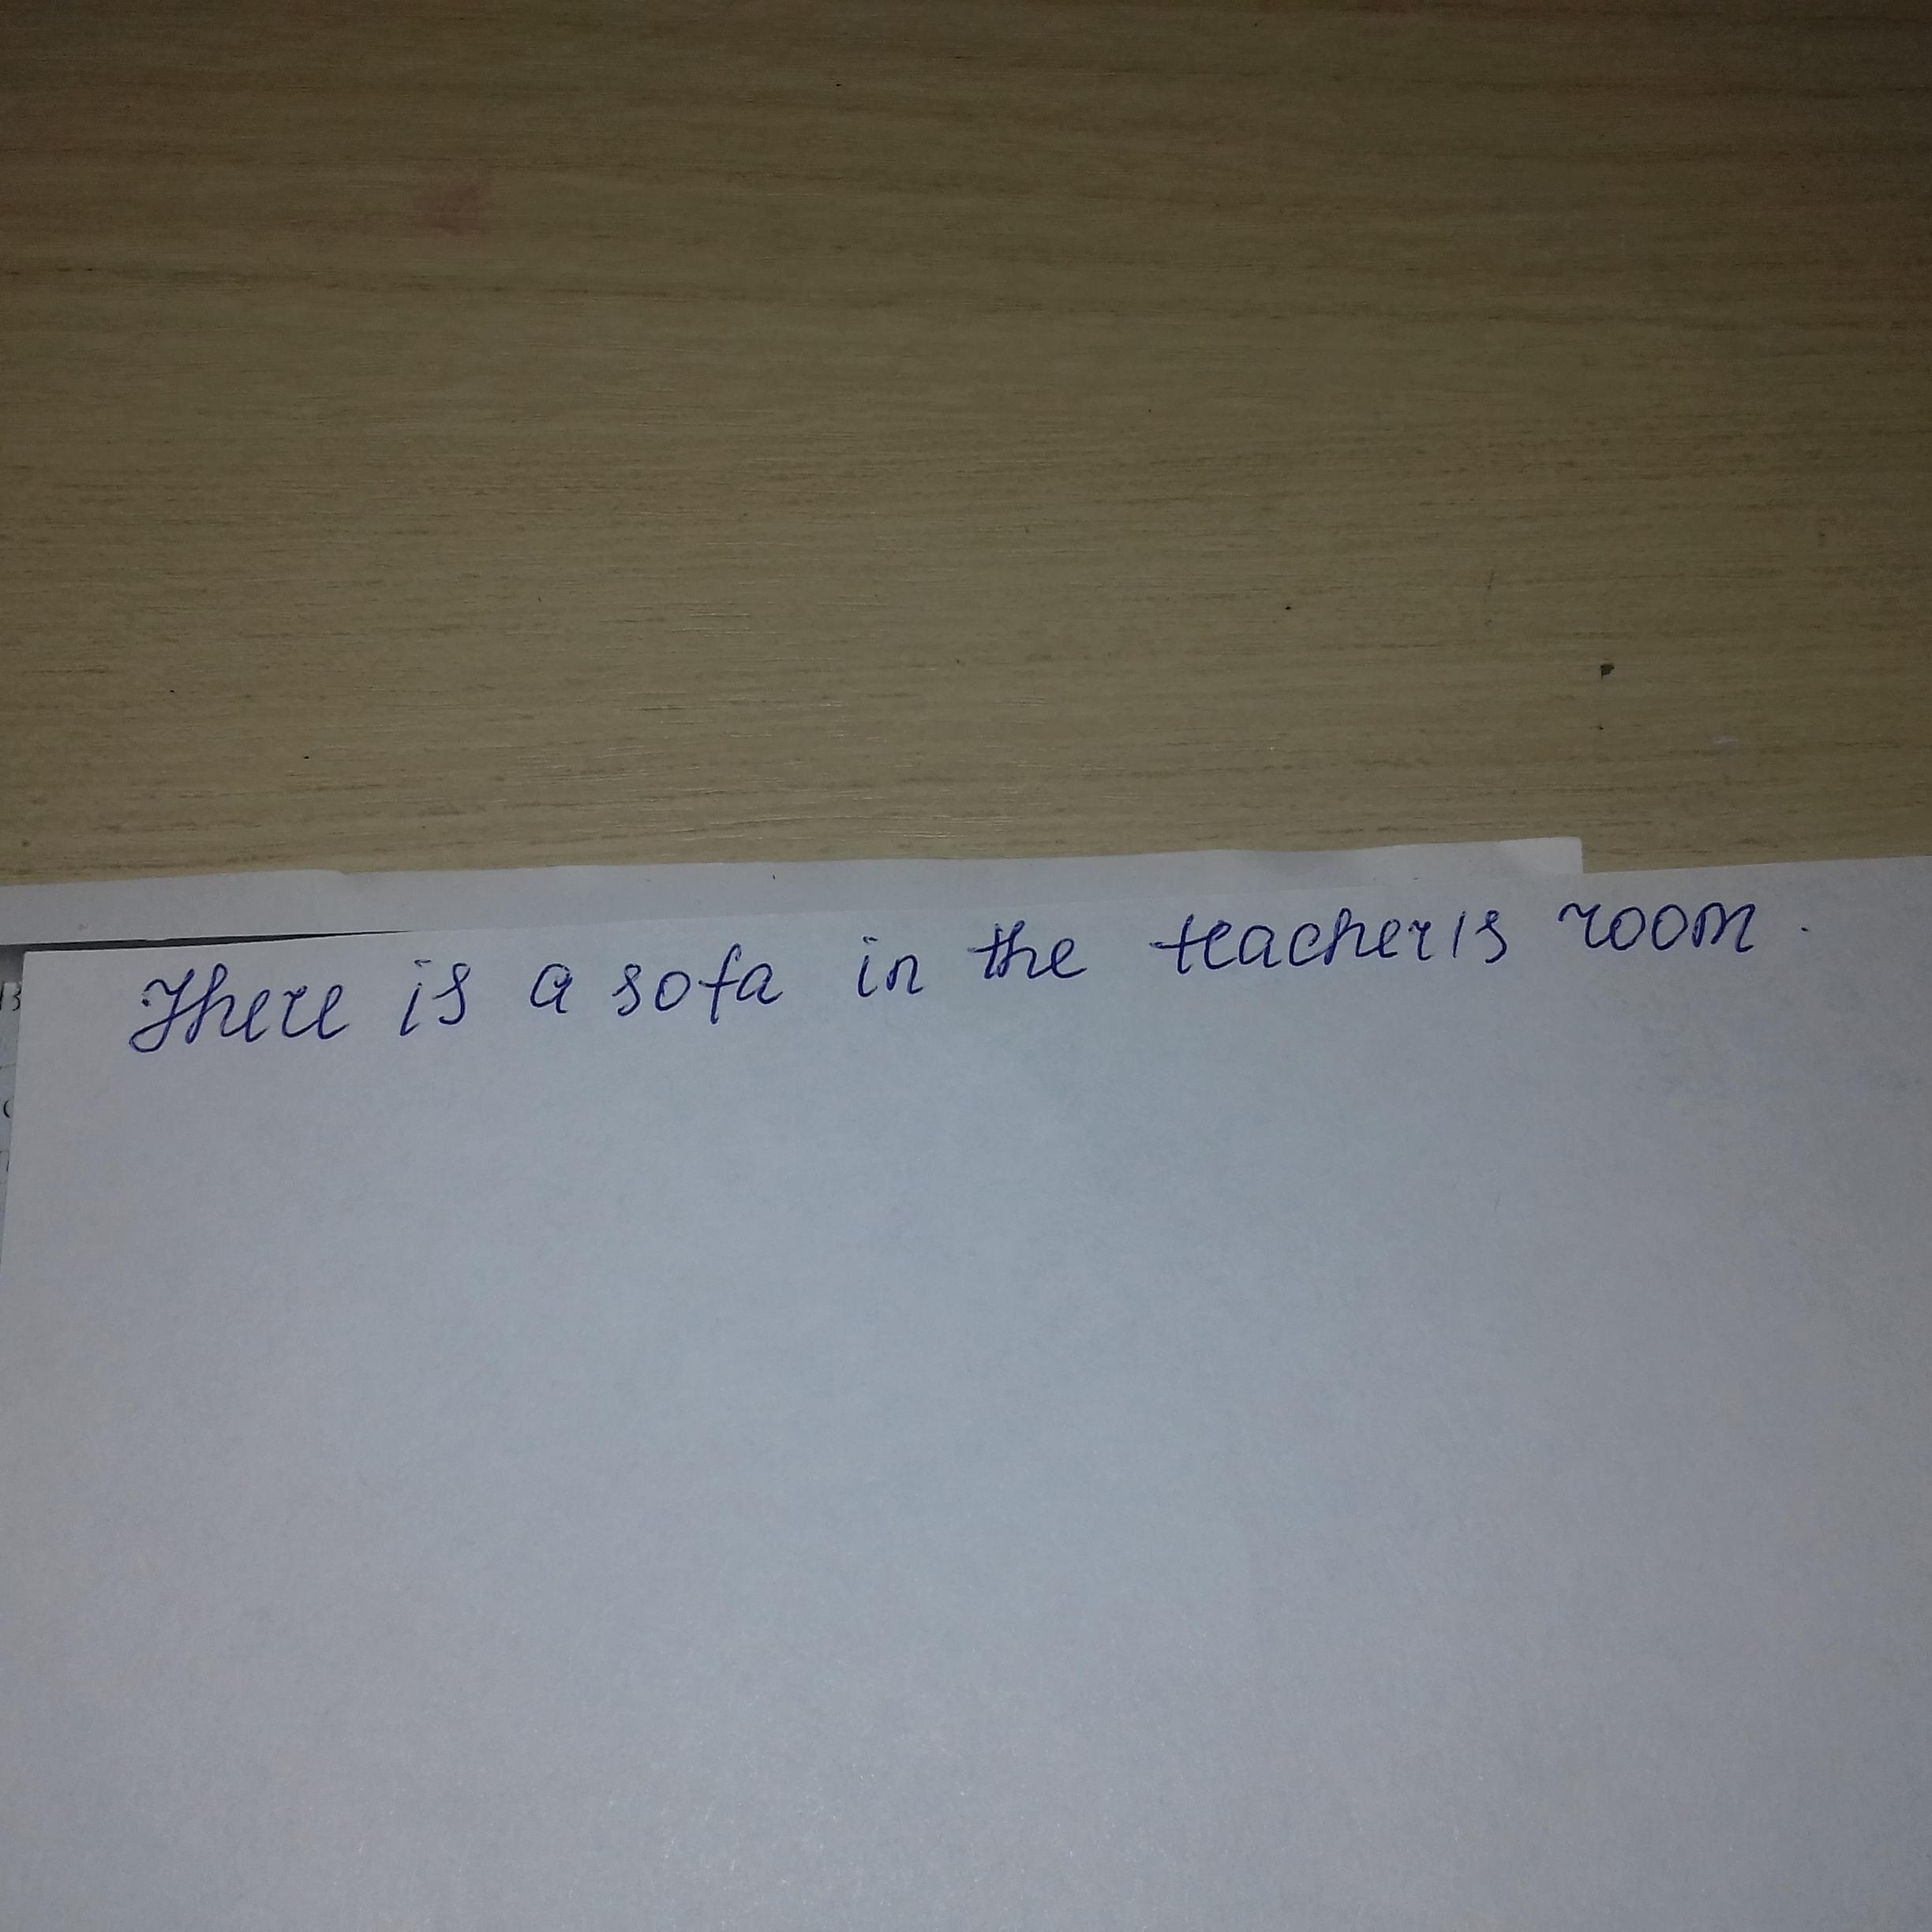 There is a sofa in the teacher's room.